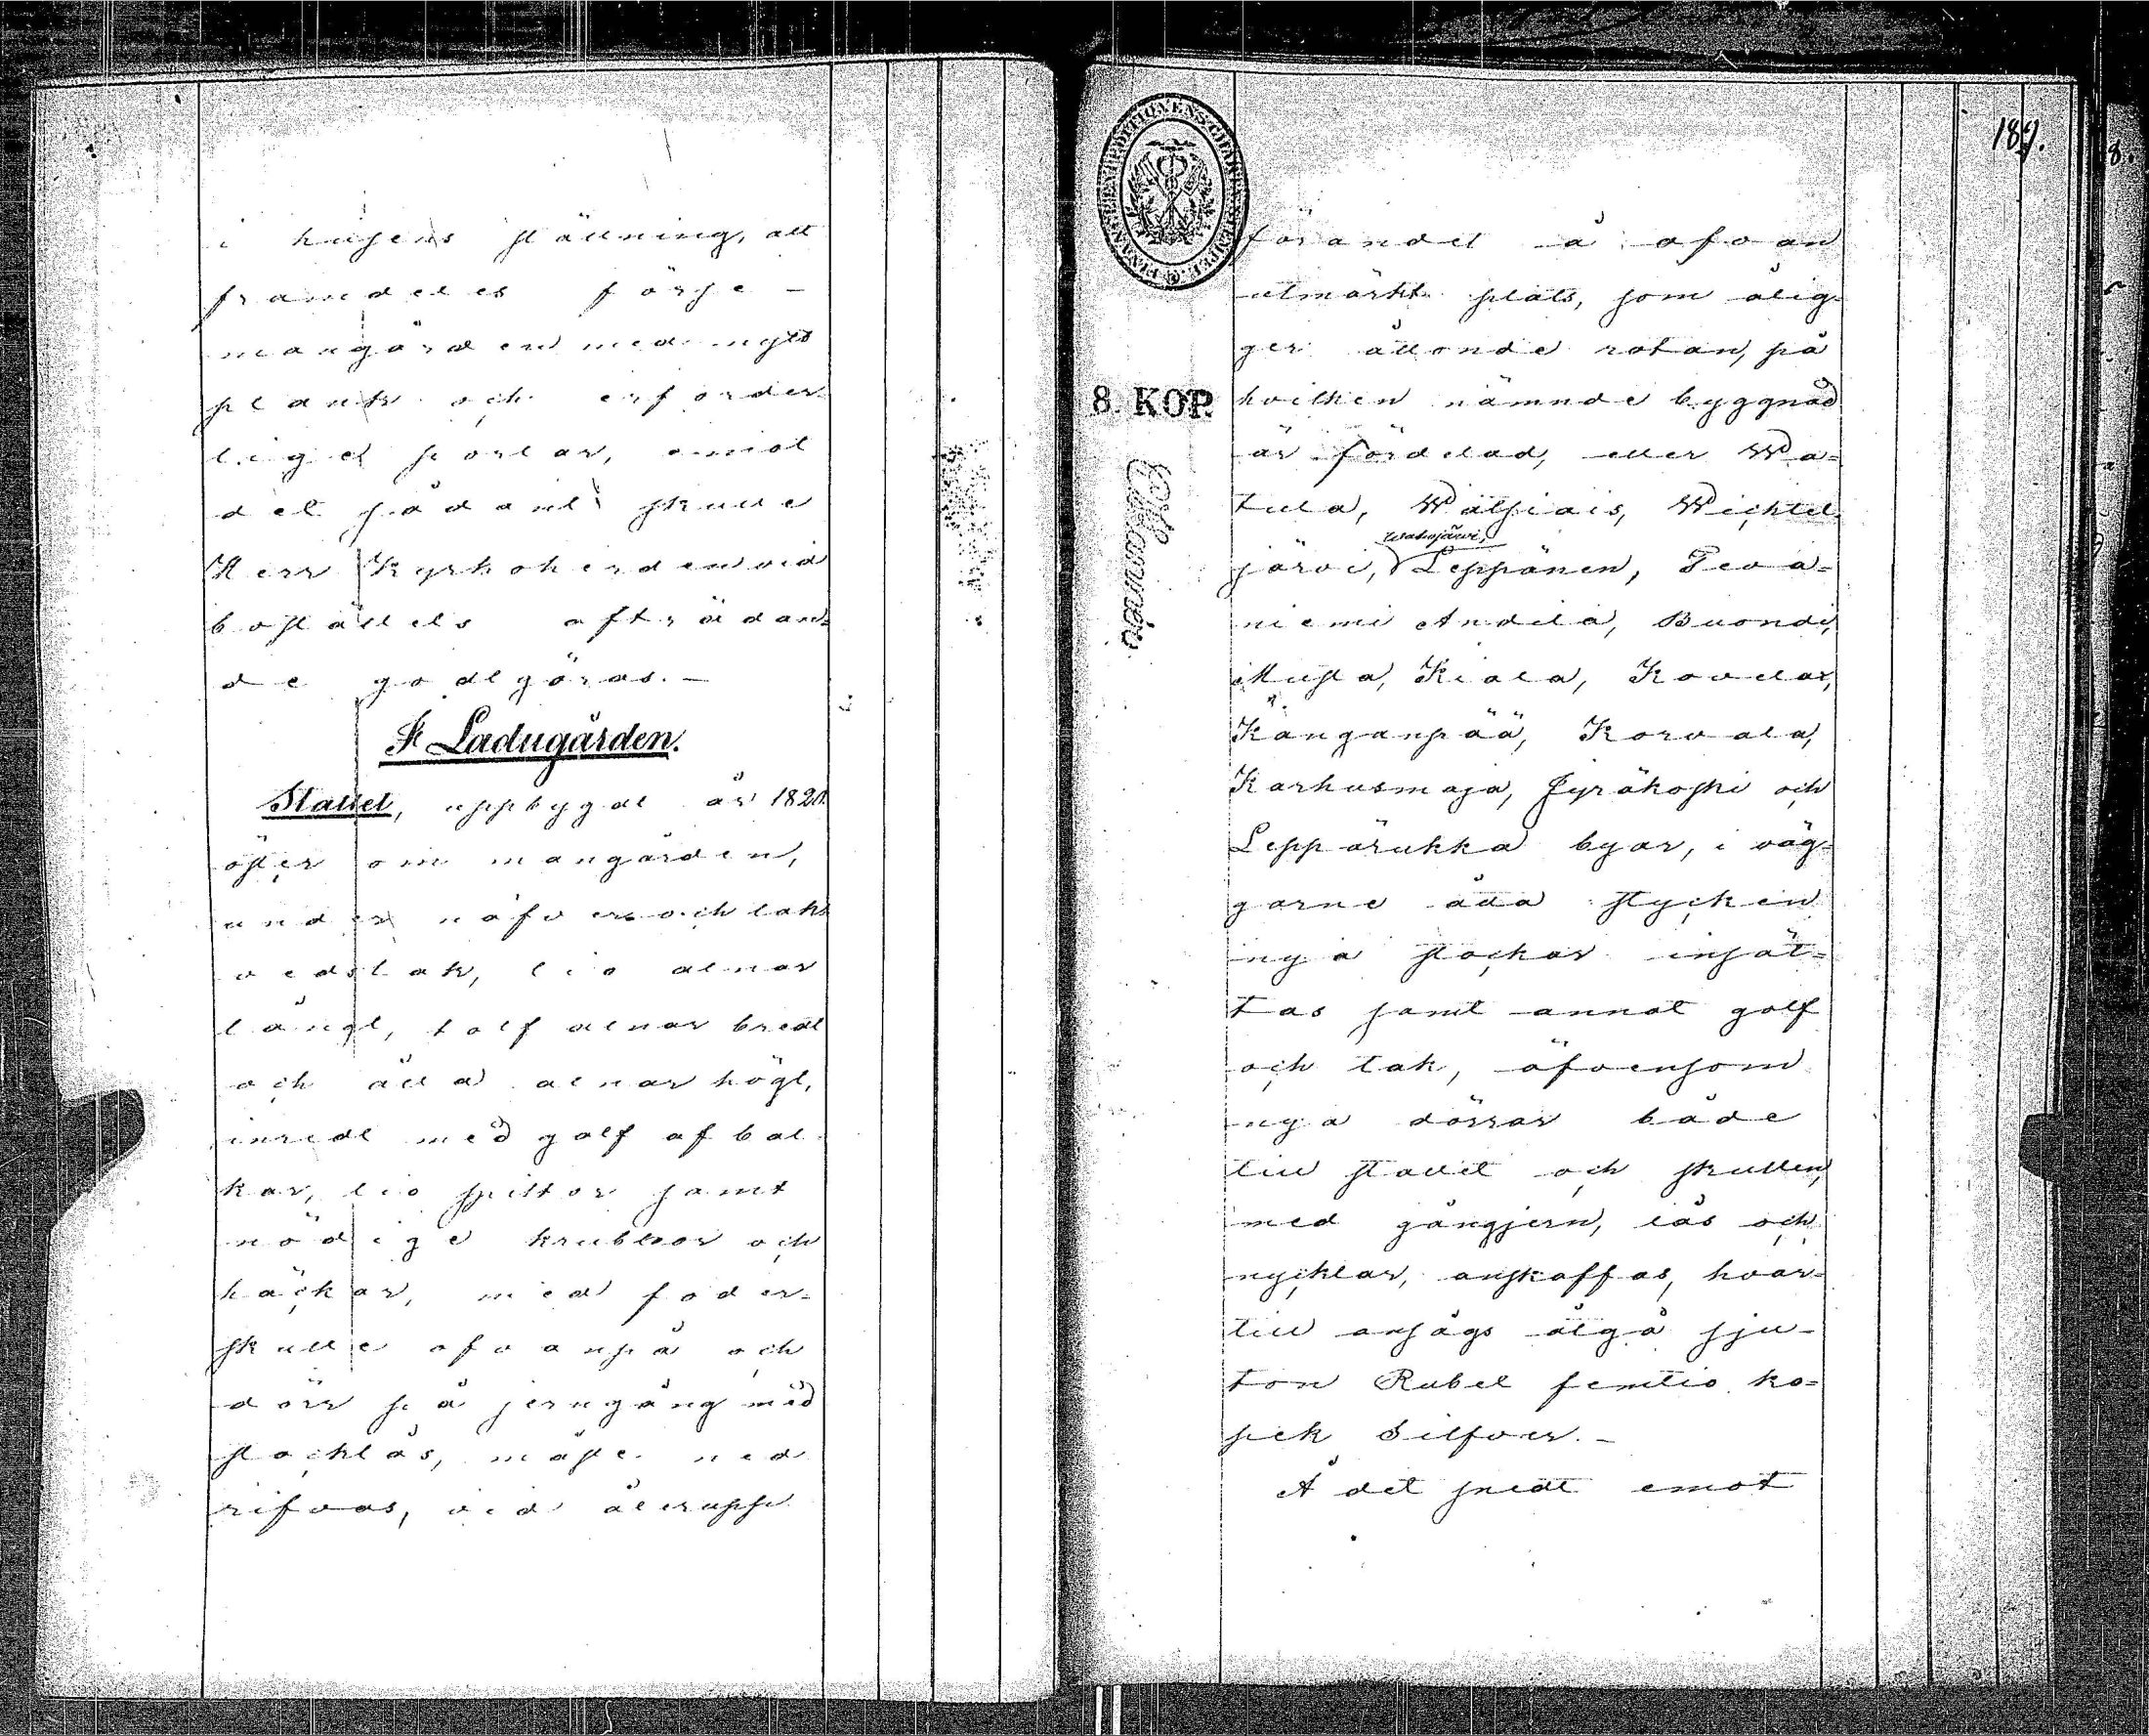 i husens ställning, att
framdeles förse
mangården med nytt
plank och erforder
liget portar, emot
det sådant skulle
Herr Kyrkoherden vid
boställets afträdan=
de godtgöras. —
F Ladugården.
Stallet, uppbygdt år 1820.
öster om mangården,
under näfver och tak
vedstak, tio alnar
långt, tolf alnar bredt
och åtta alnar högt,
inredt med golf af bal
kar, tio spiltor samt
nödige krubbor och
häckar, med foder=
skulle ofvanpå och
dörr på jerngång med
stocklås, måste ned
rifvas, vid återuppe
189.
8. KOP.
Charta
förandet å ofvan
utmärkte plats, som ålig=
ger åttonde rotan, på
hvilken nämnde byggnad
är fördelad, eller Wa=
tula, Watsiais, Wichtel
Wahojärvi,
järvi, Leppänen, Peva=
niemi Andila, Buondi,
Musta, Kiala, Kovelax,
Kanganpää, Korvala,
Karhusmaja, Jyräkoski och
Lepparukka byar, i väg=
garne åtta stycken
nya stockar insät=
tas samt annat golf
och tak, äfvensom
nya dörrar både
till stallet och skullen,
med gångjern, lås och
nycklar, anskaffas, hvar=
till ansågs åtgå sju=
ton Rubel femtio ko=
pek Silfver. —
A det snedt emot